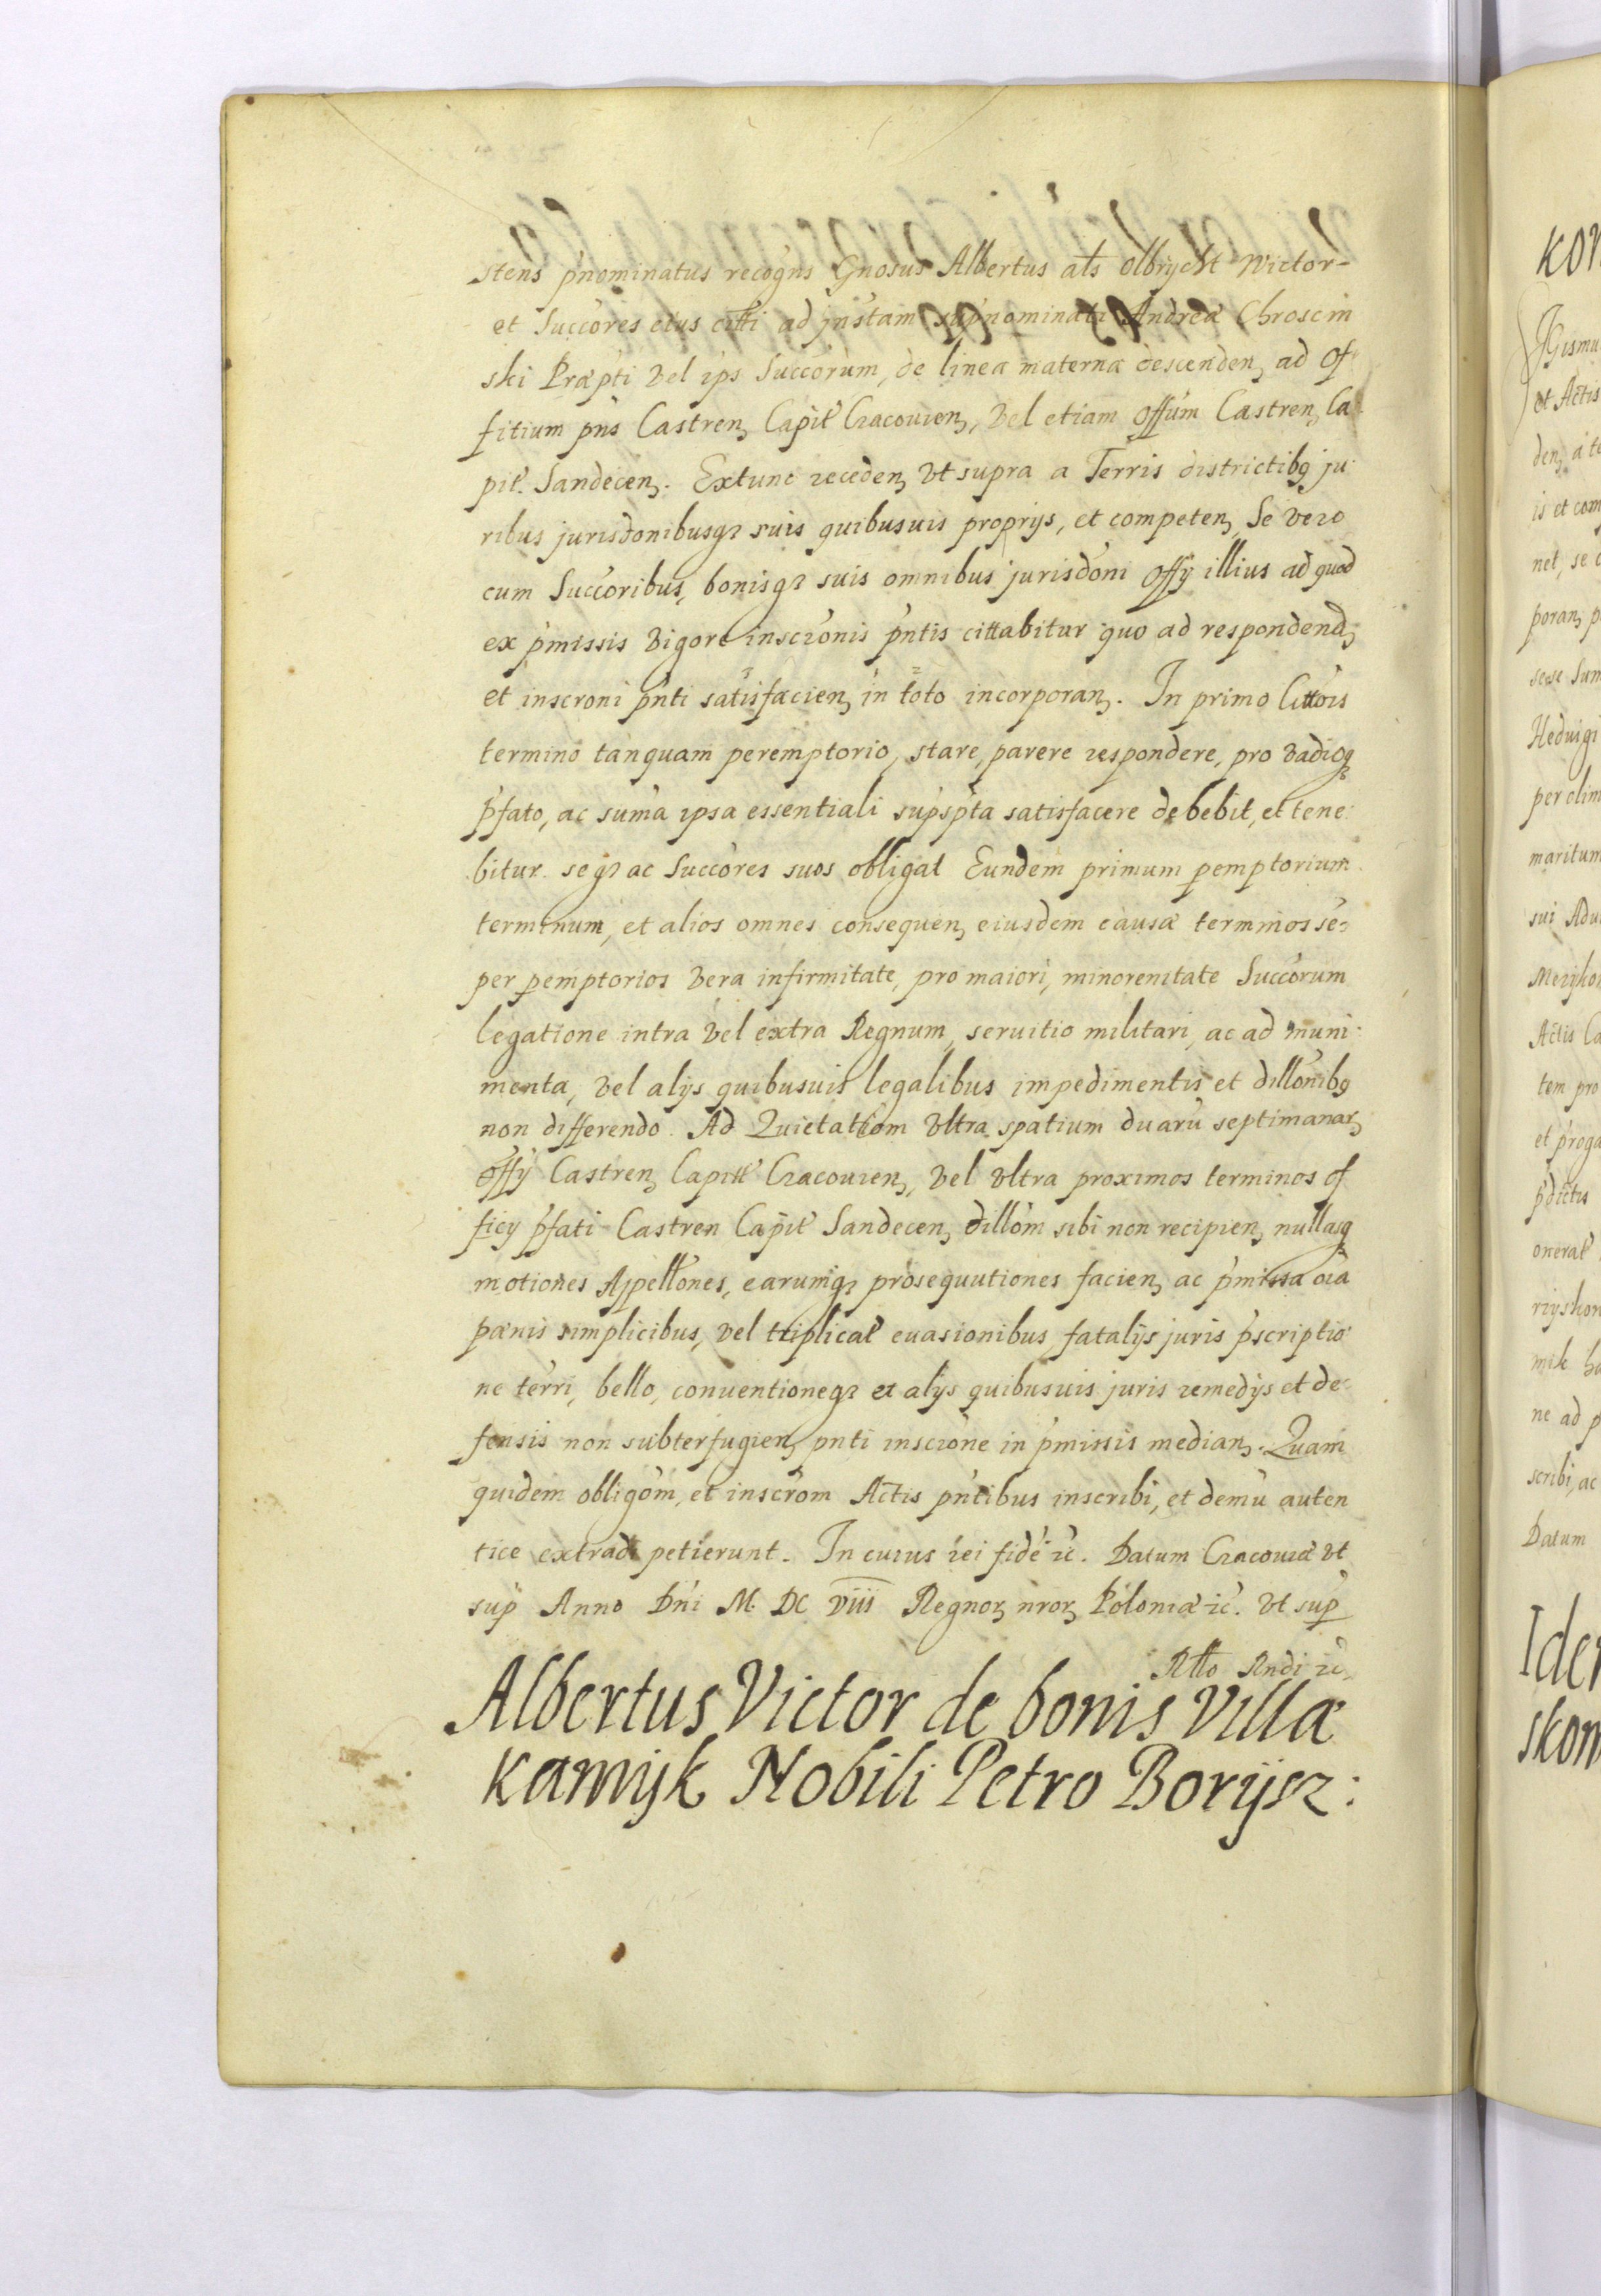 stens pnominatus recogns Gnosus Albertus als Olbrycht Wictor-
et Succores eius citti ad jnstam supnominati Andreæ Chroscin
ski Præpti vel ips Succorum, de linea materna descenden, ad of
fitium pns Castren, Capit Cracouien, vel etiam offum Castren, Ca
pit. Sandecen. Extunc receden, vt supra a Terris districtibq ju
ribus jurisdonibusq3 suis quibusuis proprijs, et competen, Se vero
cum Succoribus, bonisq3 suis omnibus jurisdoni offy illius ad quod
ex pmissis vigore inscronis pntis cittabitur quo ad respondend,
et inscroni pnti satisfacien, in toto incorporan. In primo Cittois
termino tanquam peremptorio, stare, parere respondere, pro vadioq
pfato, ac suma ipsa essentiali supspta satisfacere debebit, et tene
bitur. seq3 ac Succores suos obligat Eundem primum pemptorium
terminum, et alios omnes consequen, eiusdem causæ terminos se-
per pemptorios vera infirmitate, pro maiori, minorenitate Succorum
legatione intra vel extra Regnum, seruitio militari, ac ad muni:
menta, vel alijs quibusuis legalibus impedimentis et dillonibq
non differendo. Ad Quietatiom vltra spatium duaru septimanar,
offy Castren, Capitt Cracouien, vel vltra proximos terminos of
ficy pfati Castren Capit Sandecen, dillom sibi non recipien, nullasq
motiones Appellones, earumq3 prosequutiones facien, ac pmissa oia
pænis simplicibus, vel triplicat euasionibus, fatalijs juris pscriptio
ne terri, bello, conuentioneq3 et alijs quibusuis juris remedijs et de-
fensis non subterfugien, pnti inscrone in pmissis median. Quam
quidem obligom, et inscrom Actis pntibus inscribi, et demu auten
tice extradi petierunt. In cuius rei fide ic. Datum Cracouiæ vt
sup Anno Dni M. DC viii Regnor, nror, Poloniæ ic. vt sup
Albertus Victor de bonis Villæ
Kamijk Nobili Petro Borijsz: